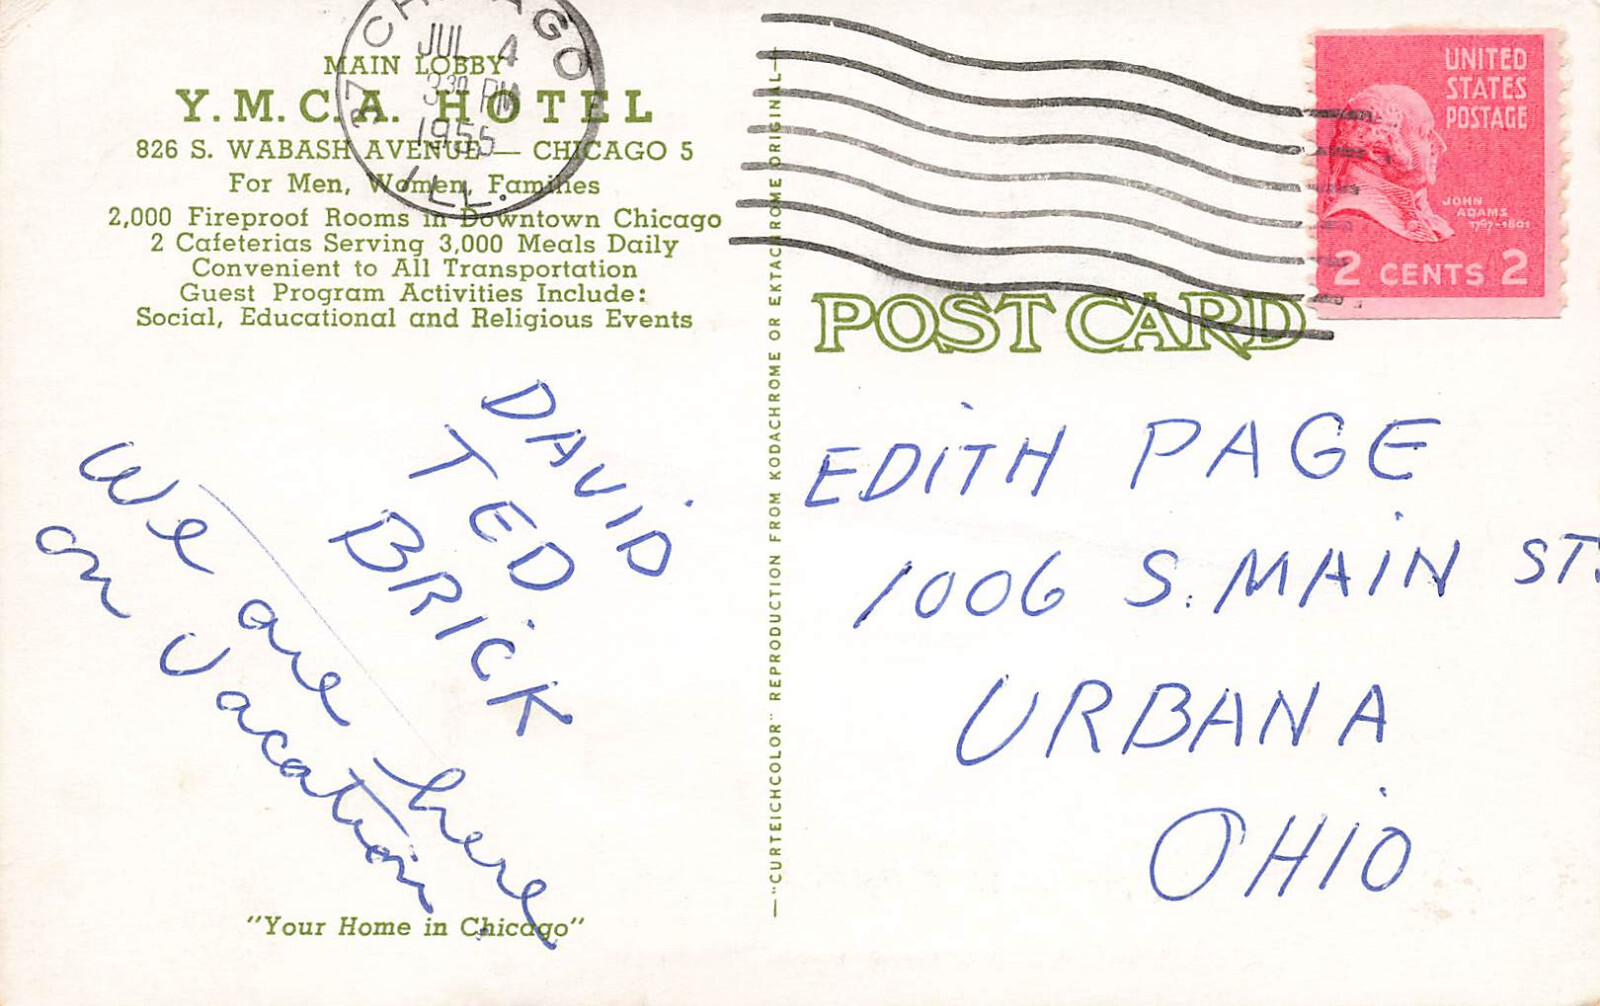 MAIN LOBBY
Y. M. C. A. HOTEL
826 S. WABASH AVENUE — CHICAGO 5
For Men, Women, Families
2,000 Fireproof Rooms in Downtown Chicago
2 Cafeterias Serving 3,000 Meals Daily
Convenient to All Transportation
Guest Program Activities Include:
Social, Educational and Religious Events
CHICAGO
JUL 4
3 30 PM
1955
ILL.
DAVID
TED
BRICK
We are here
on vacation
"Your Home in Chicago"
—"CURTEICHCOLOR" REPRODUCTION FROM KODACHROME OR EKTACHROME ORIGINAL—
UNITED
STATES
POSTAGE
JOHN
ADAMS
1797-1801
2 CENTS 2
POST CARD
EDITH PAGE
1006 S. MAIN ST.
URBANA
OHIO